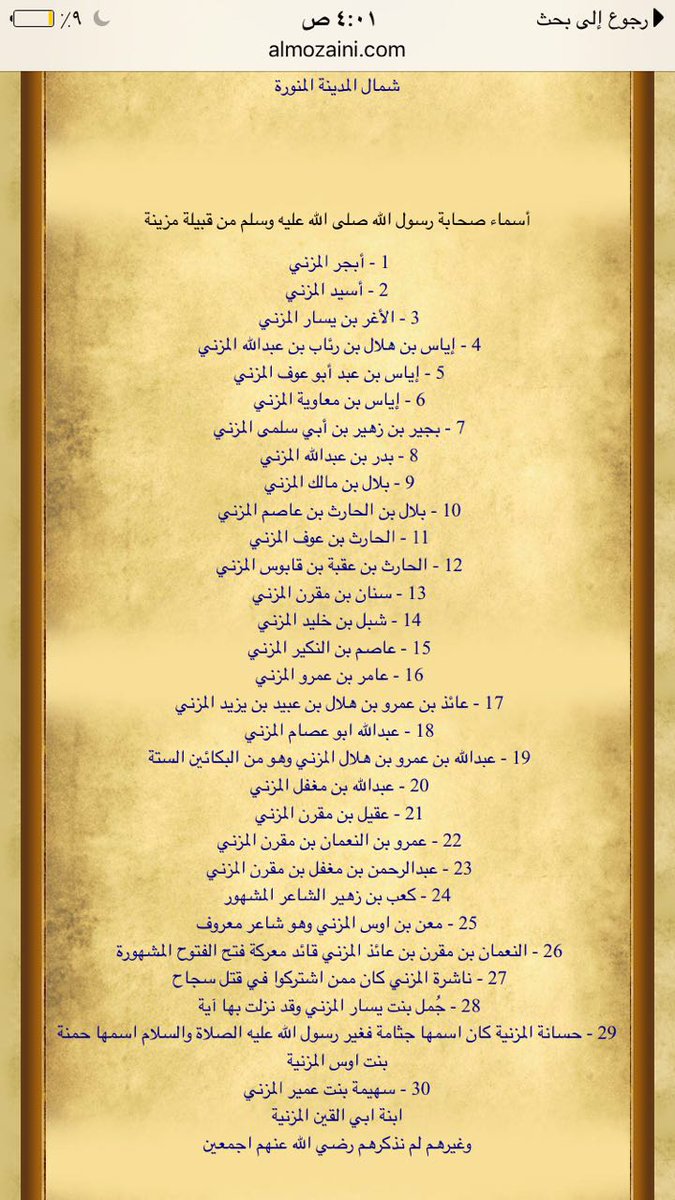 رجوع إلى بحث ٤:٠١ ص ٩٪
almozaini.com
شمال المدينة المنورة
أسماء صحابة رسول الله صلى الله عليه وسلم من قبيلة مزينة
1 - أبجر المزني
2 - أسيد المزني
3 - الأغر بن يسار المزني
4 - إياس بن هلال بن رئاب بن عبدالله المزني
5 - إياس بن عبد أبو عوف المزني
6 - إياس بن معاوية المزني
7 - بجير بن زهير بن أبي سلمى المزني
8 - بدر بن عبدالله المزني
9 - بلال بن مالك المزني
10 - بلال بن الحارث بن عاصم المزني
11 - الحارث بن عوف المزني
12 - الحارث بن عقبة بن قابوس المزني
13 - سنان بن مقرن المزني
14 - شبل بن خليد المزني
15 - عاصم بن النكير المزني
16 - عامر بن عمرو المزني
17 - عائذ بن عمرو بن هلال بن عبيد بن يزيد المزني
18 - عبدالله ابو عصام المزني
19 - عبدالله بن عمرو بن هلال المزني وهو من البكائين الستة
20 - عبدالله بن مغفل المزني
21 - عقيل بن مقرن المزني
22 - عمرو بن النعمان بن مقرن المزني
23 - عبدالرحمن بن مغفل بن مقرن المزني
24 - كعب بن زهير الشاعر المشهور
25 - معن بن اوس المزني وهو شاعر معروف
26 - النعمان بن مقرن بن عائذ المزني قائد معركة فتح الفتوح المشهورة
27 - ناشرة المزني كان ممن اشتركوا في قتل سجاح
28 - جُمل بنت يسار المزني وقد نزلت بها آية
29 - حسانة المزنية كان اسمها جثامة فغير رسول الله عليه الصلاة والسلام اسمها حمنة
بنت اوس المزنية
30 - سهيمة بنت عمير المزني
ابنة ابي القين المزنية
وغيرهم لم نذكرهم رضي الله عنهم اجمعين